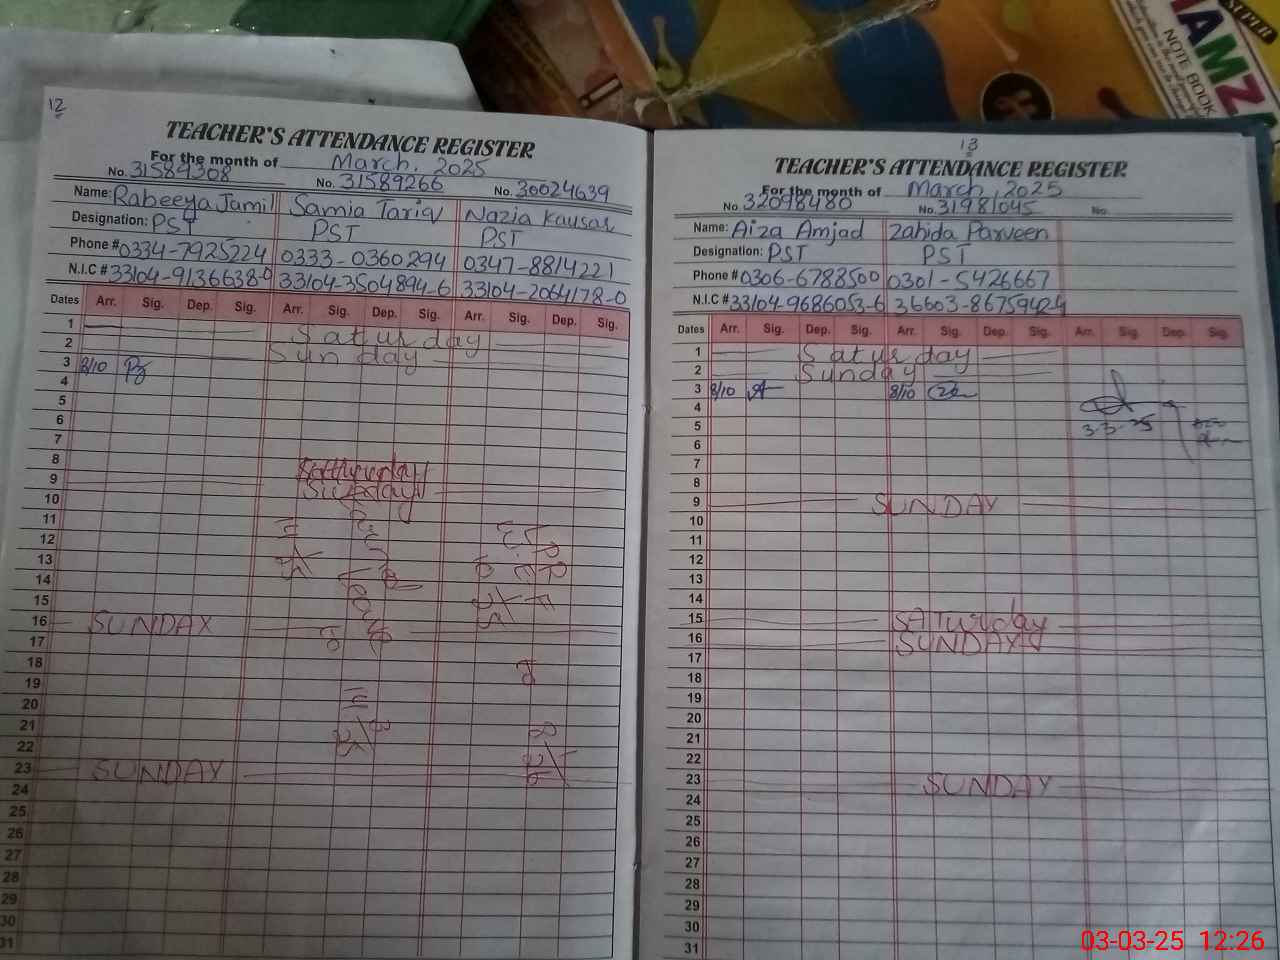 SUPER
HAMZ
NOTE BOOK
12
TEACHER'S ATTENDANCE REGISTER
For the month of March, 2025
No. 31589308 No. 31589266 No. 30024639
Name: Rabeeya Jamil Samia Tariq Nazia Kausar
Designation: PST PST PST
Phone # 0334-7925224 0333-0360294 0347-8814221
N.I.C # 33104-9136638-0 33104-3504894-6 33104-2064178-0
Dates Arr. Sig. Dep. Sig. Arr. Sig. Dep. Sig. Arr. Sig. Dep. Sig.
1 Saturday
2 Sunday
3 8/10
4
5
6
7
8
9 Sunday
10
11
12
13
14
15
16 SUNDAY
17
18
19
20
21
22
23 SUNDAY
24
25
26
27
28
29
30
31
13
TEACHER'S ATTENDANCE REGISTER
For the month of March, 2025
No. 32098480 No. 31981045 No.
Name: Aiza Amjad Zahida Parveen
Designation: PST PST
Phone # 0306-6788500 0301-5426667
N.I.C # 33104-9686053-6 36603-86759424
Dates Arr. Sig. Dep. Sig. Arr. Sig. Dep. Sig. Arr. Sig. Dep. Sig.
1 Saturday
2 Sunday
3 8/10 8/10
4
5 3-3-25
6
7
8
9 SUNDAY
10
11
12
13
14
15 SATurday
16 SUNDAY
17
18
19
20
21
22
23 SUNDAY
24
25
26
27
28
29
30
31
03-03-25 12:26